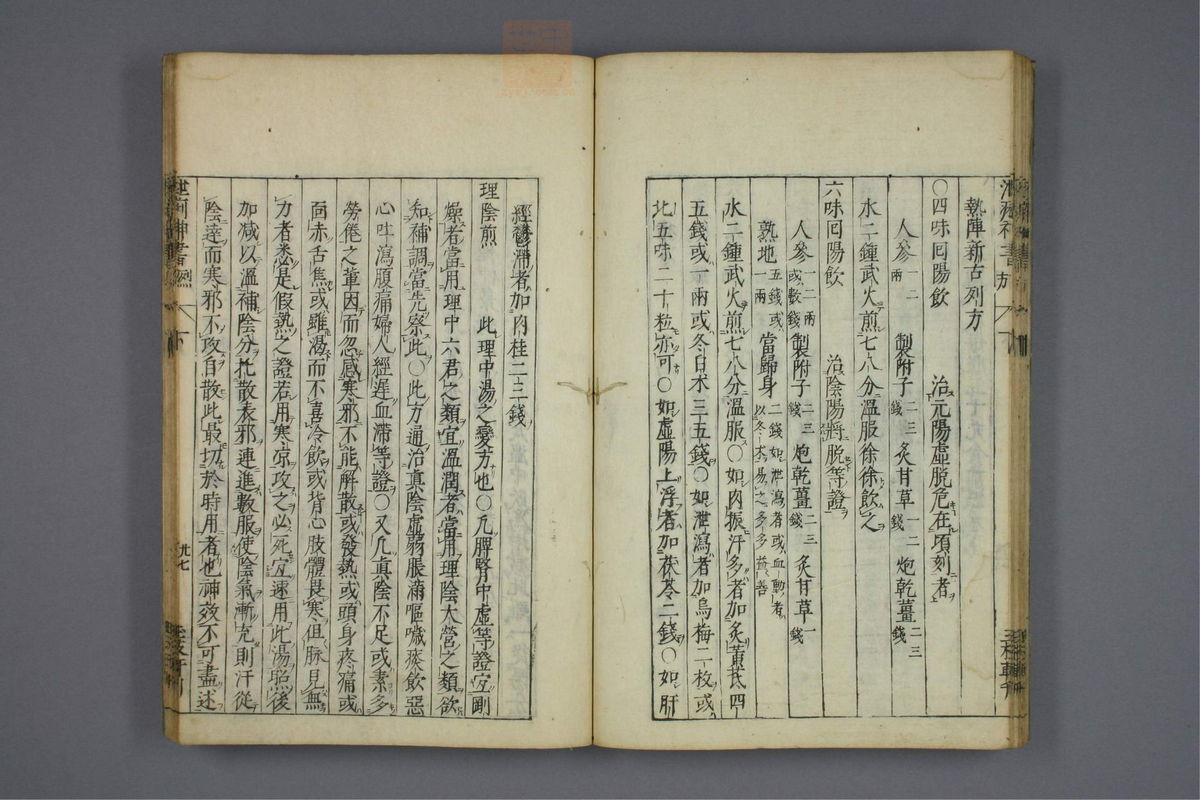 熱陣新古列方
○四味囘陽飲　治元陽虛脫危在頃刻者
人參一二兩　製附子二三錢　炙甘草一二錢　炮乾薑二三錢
水二鍾武火煎七八分溫服徐徐飲之
六味囘陽飲　治陰陽將脫等證
人參一二兩或數錢　製附子二三錢　炮乾薑二三錢　炙甘草一錢
熟地五錢或一兩　當歸身二錢如泄瀉者或血動者以冬朮易之多多益善
水二鍾武火煎七八分溫服○如肉振汗多者加炙黃芪四
五錢或一兩或冬白朮三五錢○如泄瀉者加烏梅二枚或
北五味二十粒亦可○如虛陽上浮者加茯苓二錢○如肝
經鬱滯者加肉桂二三錢
理陰煎　此理中湯之變方也○凡脾腎中虛等證宜剛
燥者當用理中六君之類宜溫潤者當用理陰大營之類欲
知補調當先察此○此方通治眞陰虛弱脹滿嘔噦痰飲惡
心吐瀉腹痛婦人經遲血滯等證○又凡眞陰不足或素多
勞倦之軰因而忽感寒邪不能解散或發熱或頭身疼痛或
面赤舌焦或雖渴而不喜冷飲或背心肢體畏寒但脉見無
力者悉是假熱之證若用寒凉攻之必死宜速用此湯照後
加减以溫補陰分托散表邪連進數服使陰氣漸充則汗從
陰達而寒邪不攻自散此最切於時用者也神效不可盡述
廾七